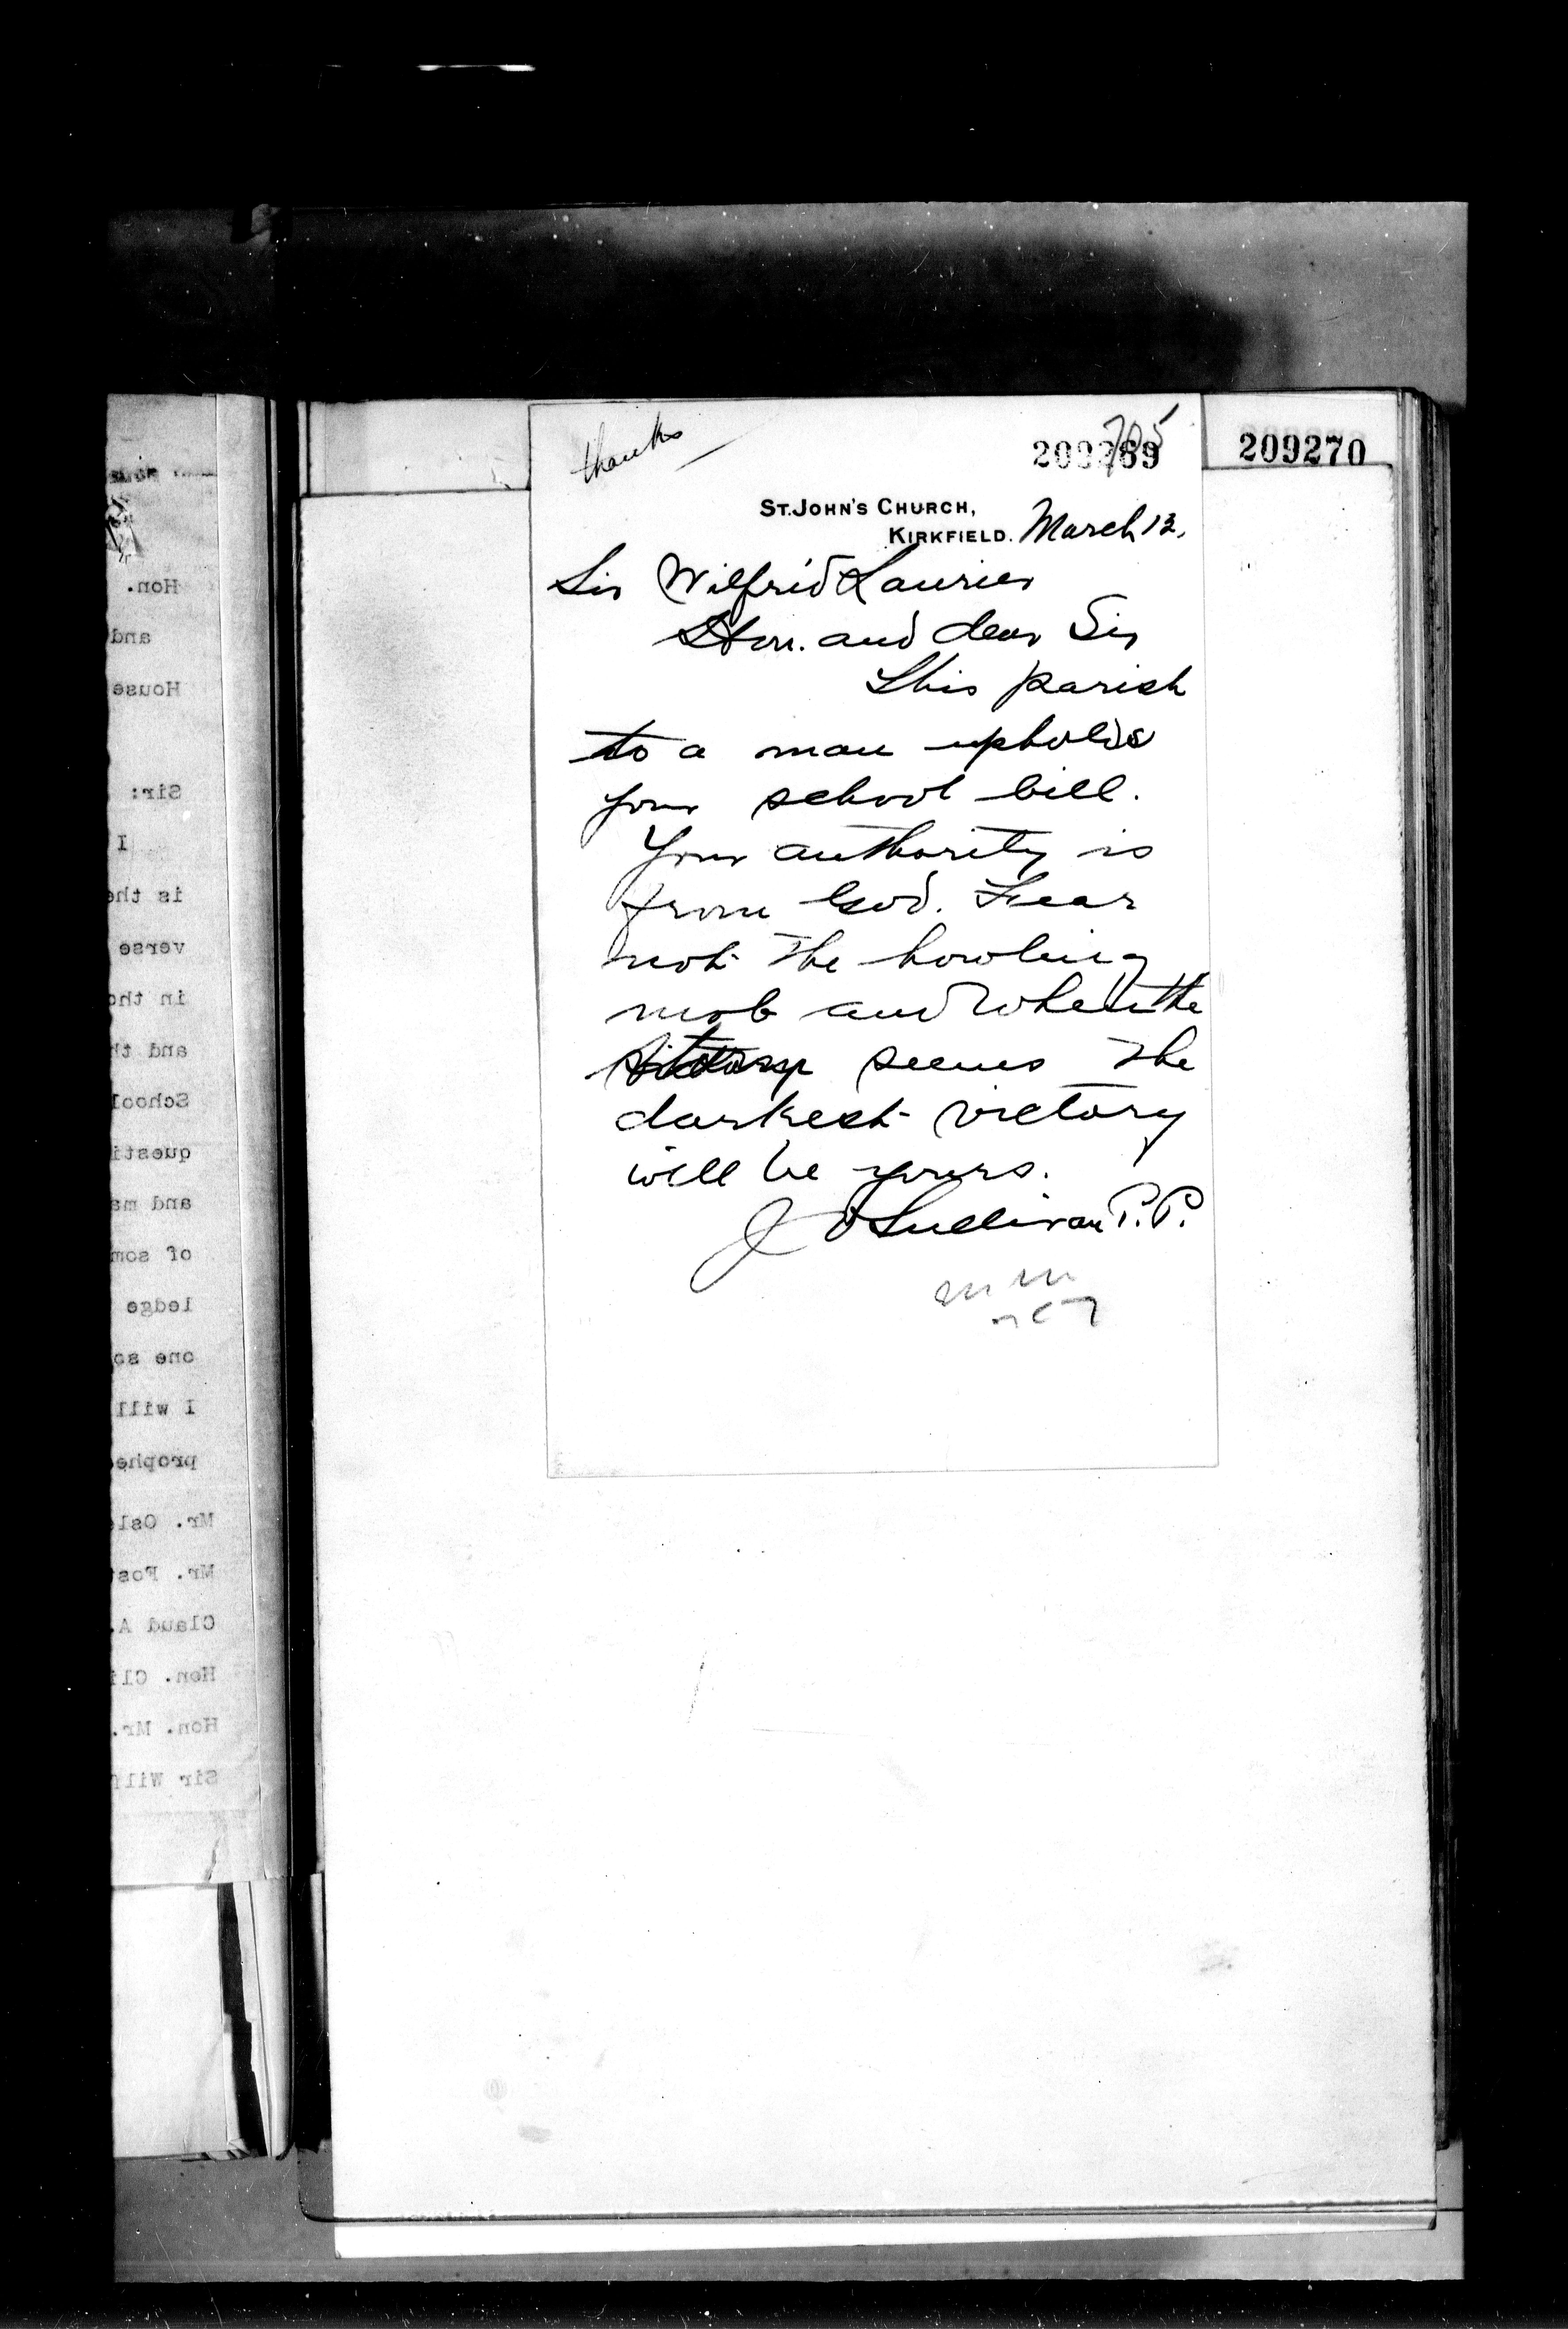 thanks
705
209269
209270
ST. JOHN'S CHURCH,
KIRKFIELD. March 12.
Sir Wilfrid Laurier
Hon. and dear Sir
This parish
to a man upholds
your school bill.
Your authority is
from God. Fear
not the howling
mob and when the
seems the
darkest victory
will be yours.
J O'Sullivan P.P.
Hon.
and
House
Sir:
I
is the
verse
in
and
School
questi
and ma
of som
ledge
one so
I will
prophe
Mr. Osl
Mr. Fos
Claud A.
Hon. Cli
Hon. Mr.
Sir Wilf